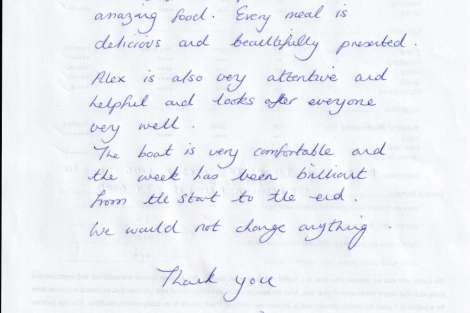 amazing food. Every meal is
delicious and beautifully presented.
Alex is also very attentive and
helpful and looks after everyone
very well.
The boat is very comfortable and
the week has been brilliant
from the start to the end.
We would not change anything.
Thank you